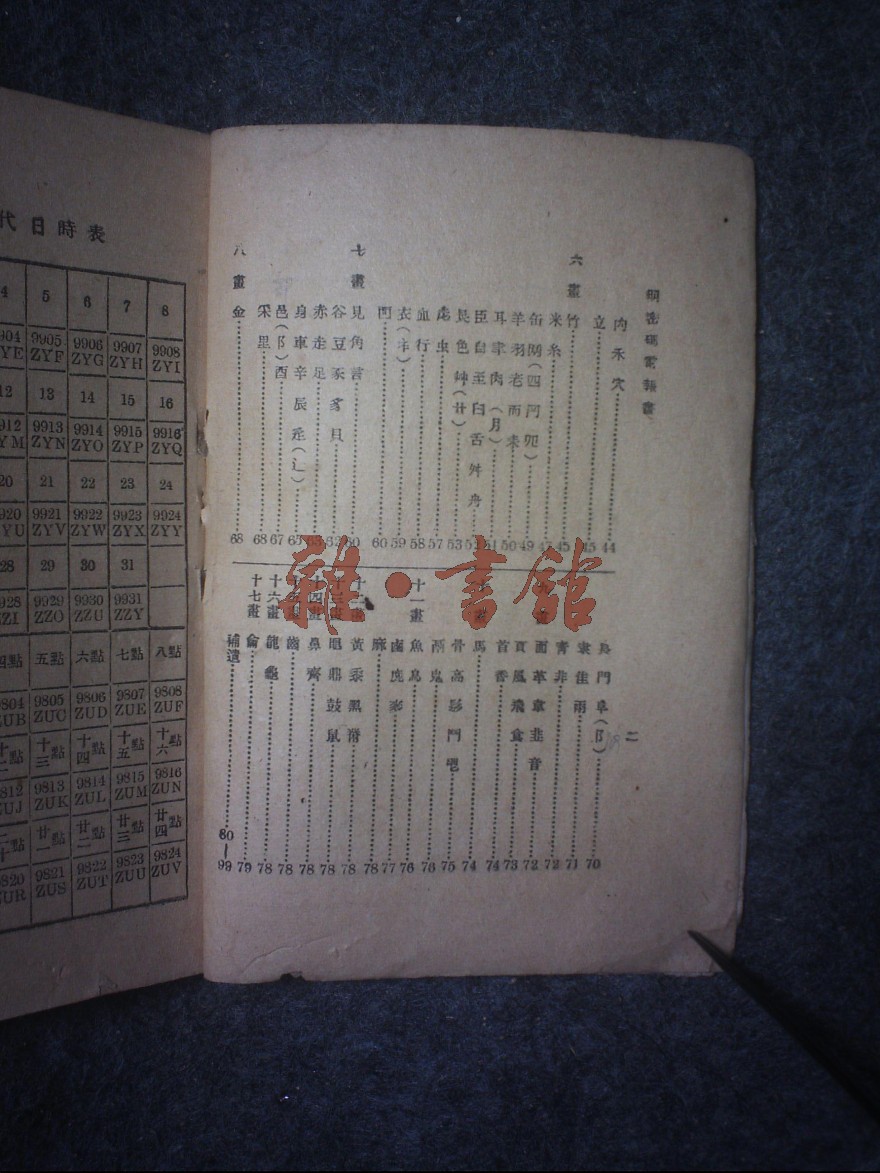 代日時表
4 5 6 7 8
9904 9905 9906 9907 9908
ZYE ZYF ZYG ZYH ZYI
12 13 14 15 16
9912 9913 9914 9915 9916
ZYM ZYN ZYO ZYP ZYQ
20 21 22 23 24
9920 9921 9922 9923 9924
ZYU ZYV ZYW ZYX ZYY
28 29 30 31
9928 9929 9930 9931
ZZI ZZO ZZU ZZY
四點 五點 六點 七點 八點
9804 9805 9806 9807 9808
ZUB ZUC ZUD ZUE ZUF
十二 十三點 十四點 十五點 十六點
9812 9813 9814 9815 9816
ZUJ ZUK ZUL ZUM ZUN
廿一點 廿二點 廿三點 廿四點
9820 9821 9822 9823 9824
ZUR ZUS ZUT ZUU ZUV
明密碼電報書
二
禸禾穴 44
立 45
六畫 竹 45
米糸 47
缶网(四冂卯) 49
羊羽老而耒 50
耳聿肉(月) 51
臣自至臼舌舛舟
艮色艸(艹) 53
虍虫 57
血行 58
衣(衤) 59
襾 60
七畫 見角言 60
谷豆豕豸貝
赤走足
身車辛辰辵(辶)
邑(阝)酉 67
釆里 68
八畫 金 68
長門阜(阝) 70
隶隹雨 71
青非 72
面革韋韭音 72
頁風飛食 73
首香 74
馬 74
骨高髟鬥鬯 75
鬲鬼 76
十一畫 魚鳥 76
鹵鹿麥 77
麻 78
黃黍黑黹 78
黽鼎鼓鼠 78
鼻齊 78
齒 78
十六畫 龍龜 78
十七畫 龠 79
補遺 80–99
雜·書館